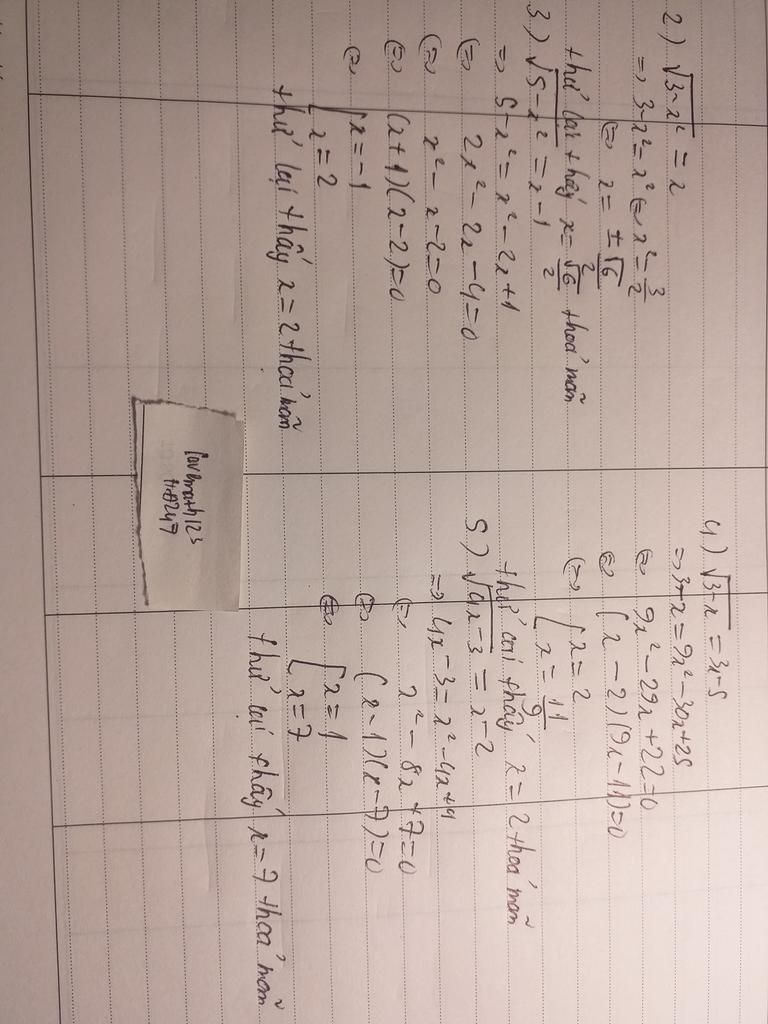 2) √(3-x²) = x
=> 3-x² = x² <=> x² = 3/2
<=> x = ±√6/2
thử lại thấy x = √6/2 thoả mãn
3) √(5-x²) = x-1
=> 5-x² = x²-2x+1
<=> 2x²-2x-4=0
<=> x²-x-2=0
<=> (x+1)(x-2)=0
<=> [x=-1
[x=2
thử lại thấy x=2 thoả mãn
4) √(3-x) = 3x-5
=> 3-x = 9x²-30x+25
<=> 9x²-29x+22=0
<=> (x-2)(9x-11)=0
<=> [x=2
[x=11/9
thử lại thấy x=2 thoả mãn
5) √(4x-3) = x-2
=> 4x-3 = x²-4x+4
<=> x²-8x+7=0
<=> (x-1)(x-7)=0
<=> [x=1
[x=7
thử lại thấy x=7 thoả mãn
lovemath123